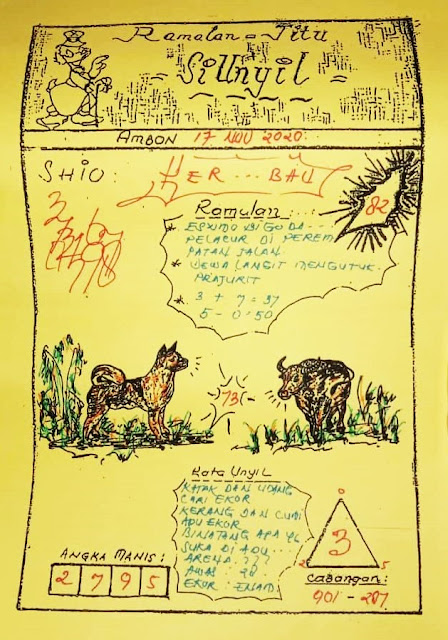 Ramalan = Jitu
= SiUnyil =
AMBON 17 NOV 2020
SHIO: KER...BAU
82
Ramulan....
* ESKIMO DIGODA...
PELACUR DI PEREM
PATAN JALAN.
* DEWA LANGIT MENGUTUK.
PRAJURIT
* 3 + 7 = 37
5 - 0 : 50
73
Kata Unyil
KATAK DAN UDANG
CARI EKOR
KERANG DAN CUMI
ADU EKOR
BINATANG APA YG
SUKA DI ADU...
ARENA. ???
AWAS : 28.
EKOR : ENAM.
ANGKA MANIS :
2 7 9 5
0
3
2 5
CABANGAN:
901 - 207